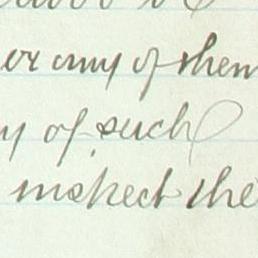 or any of them
of such
inspect the